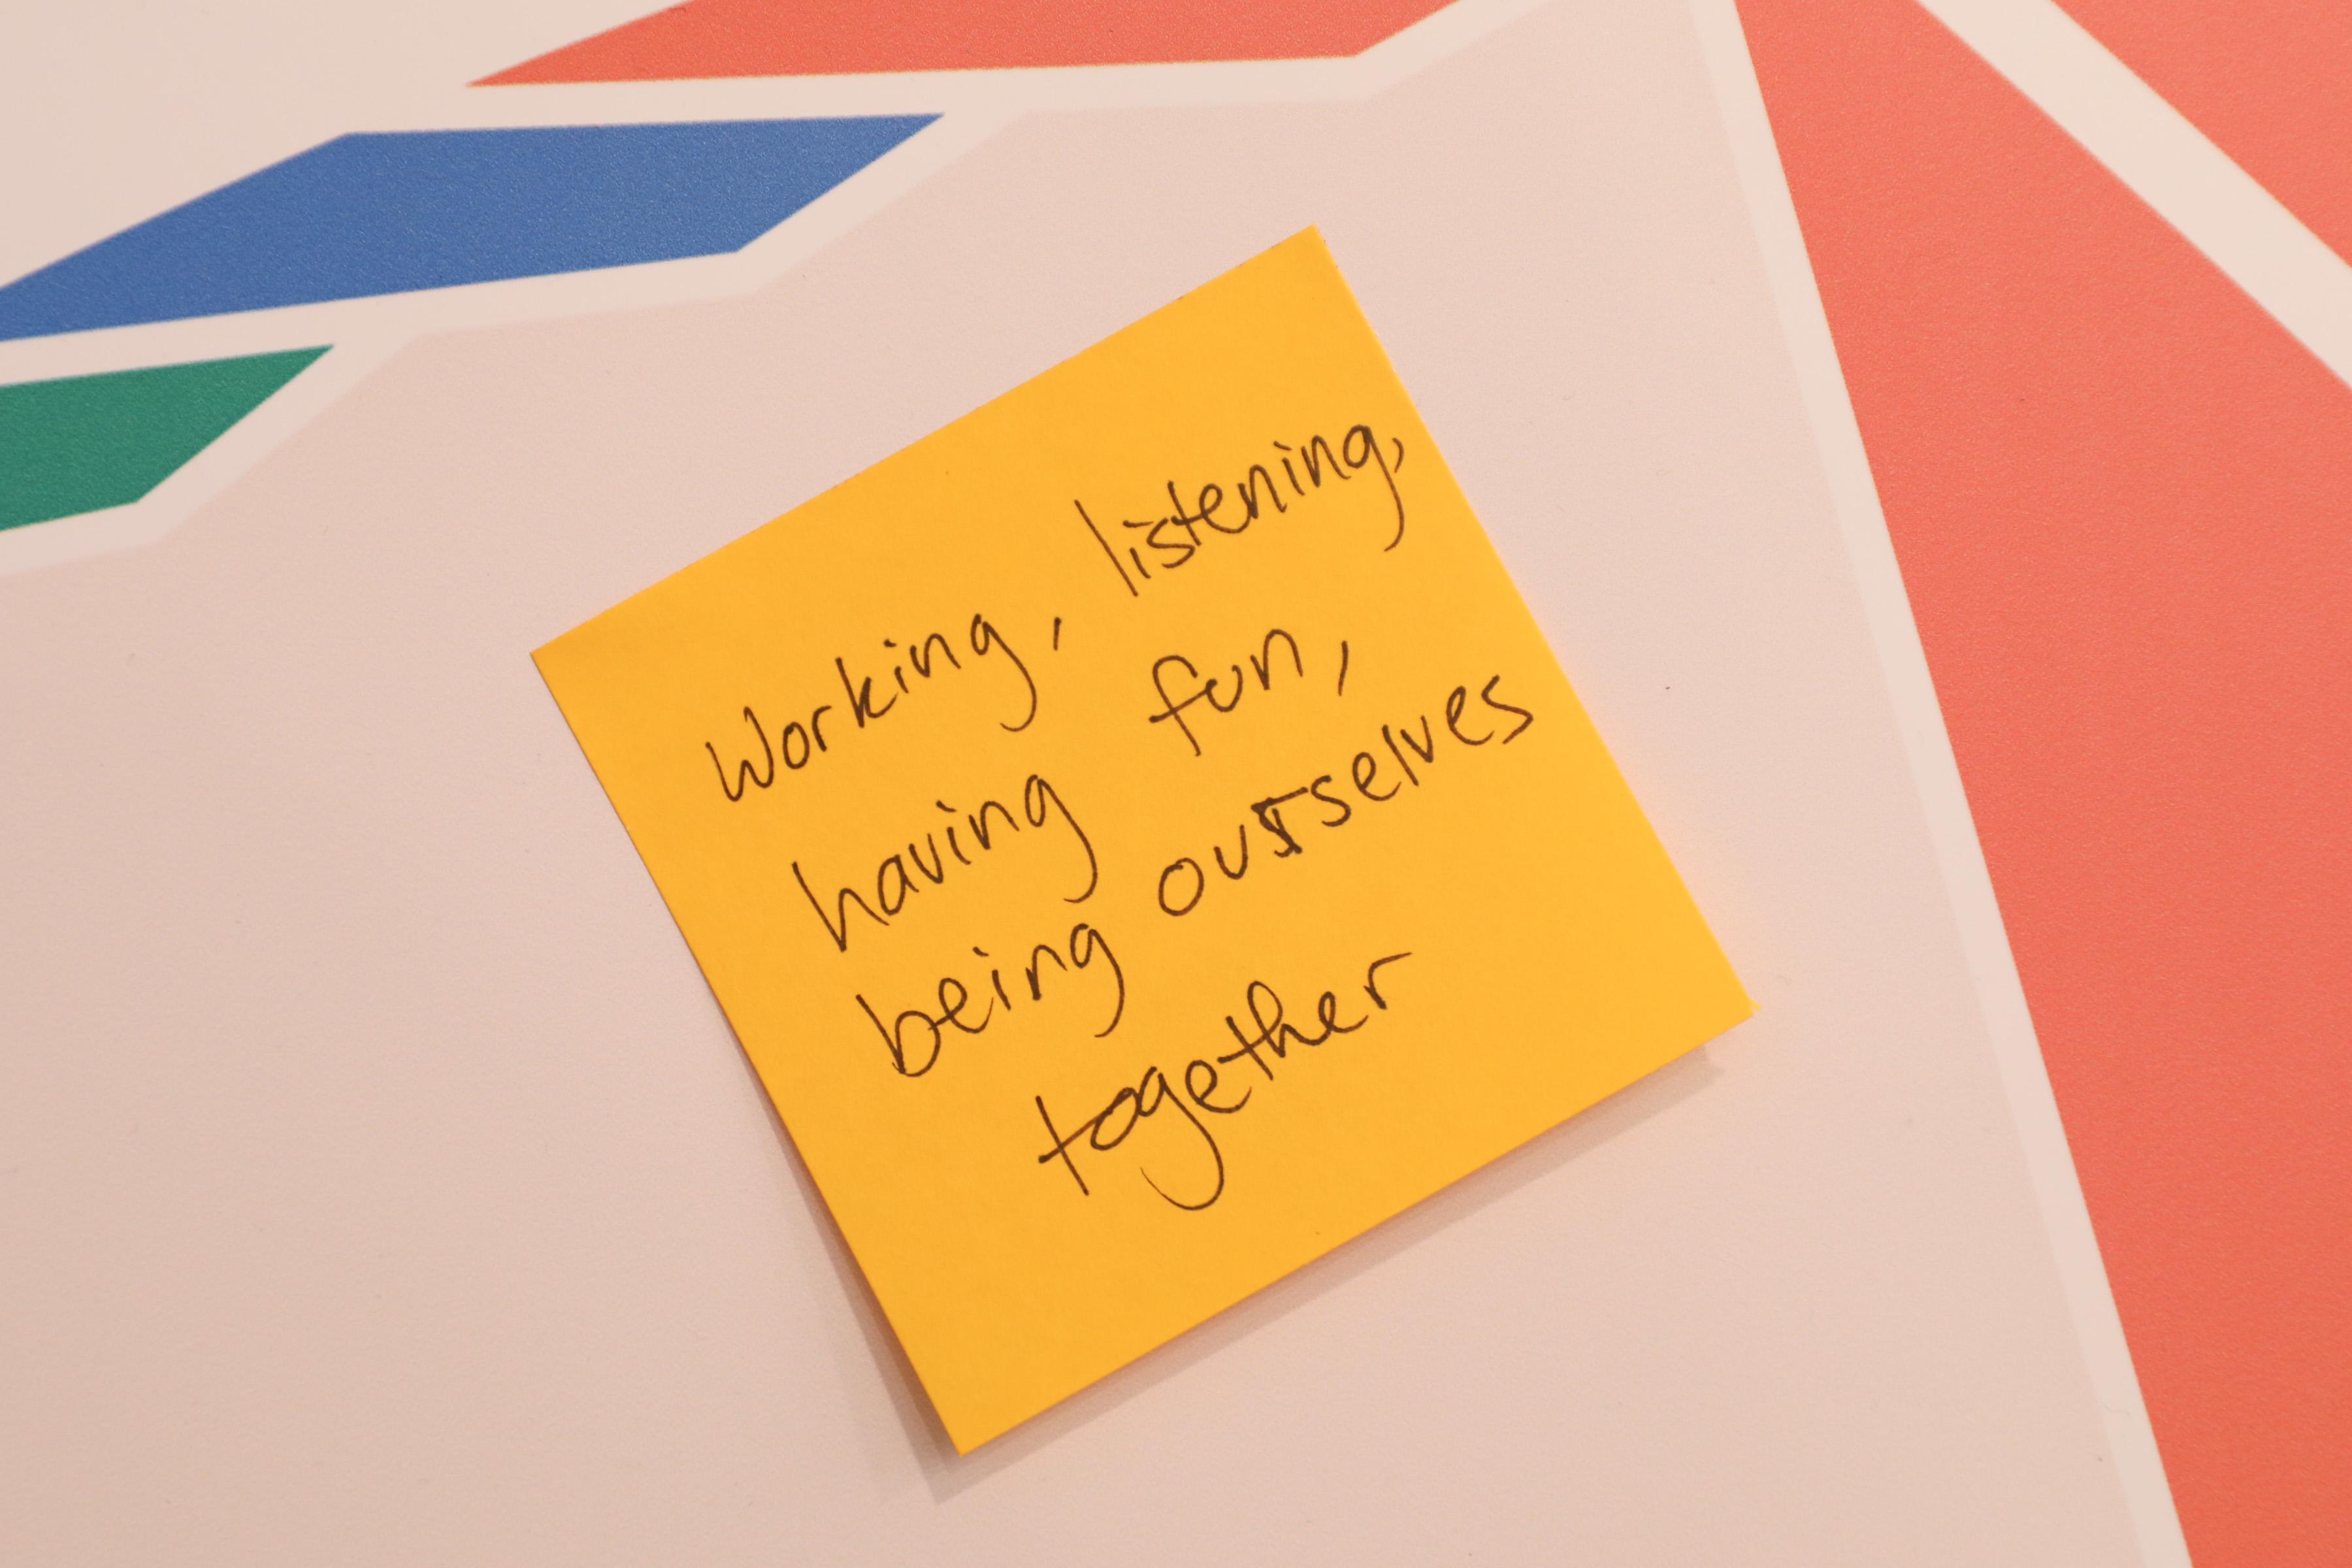 Working, listening,
having fun,
being ourselves
together